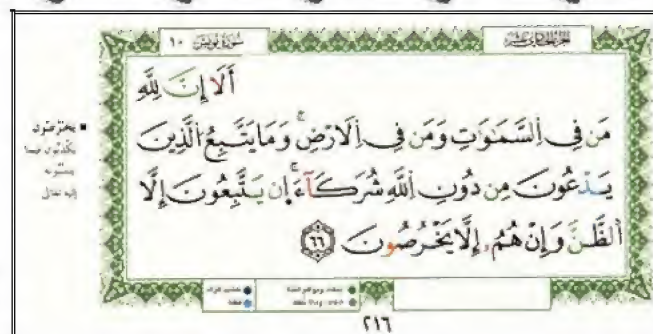 سورة يونس ١٠
الجزء الحادي عشر
أَلَا إِنَّ لِلَّهِ
مَن فِي اِلسَّمَٰوَٰتِ وَمَن فِي اِلَارْضِۖ وَمَا يَتَّبِعُ الَّذِينَ
يَدْعُونَ مِن دُونِ اِللَّهِ شُرَكَآءَۖ اِن يَتَّبِعُونَ إِلَّا
اَلظَّنَّ وَإِنْ هُمُۥ إِلَّا يَخْرُصُونَ ٦٦
■ يخرصون
يكذبون فيما
ينسبونه
إليه تعالى
٢١٦